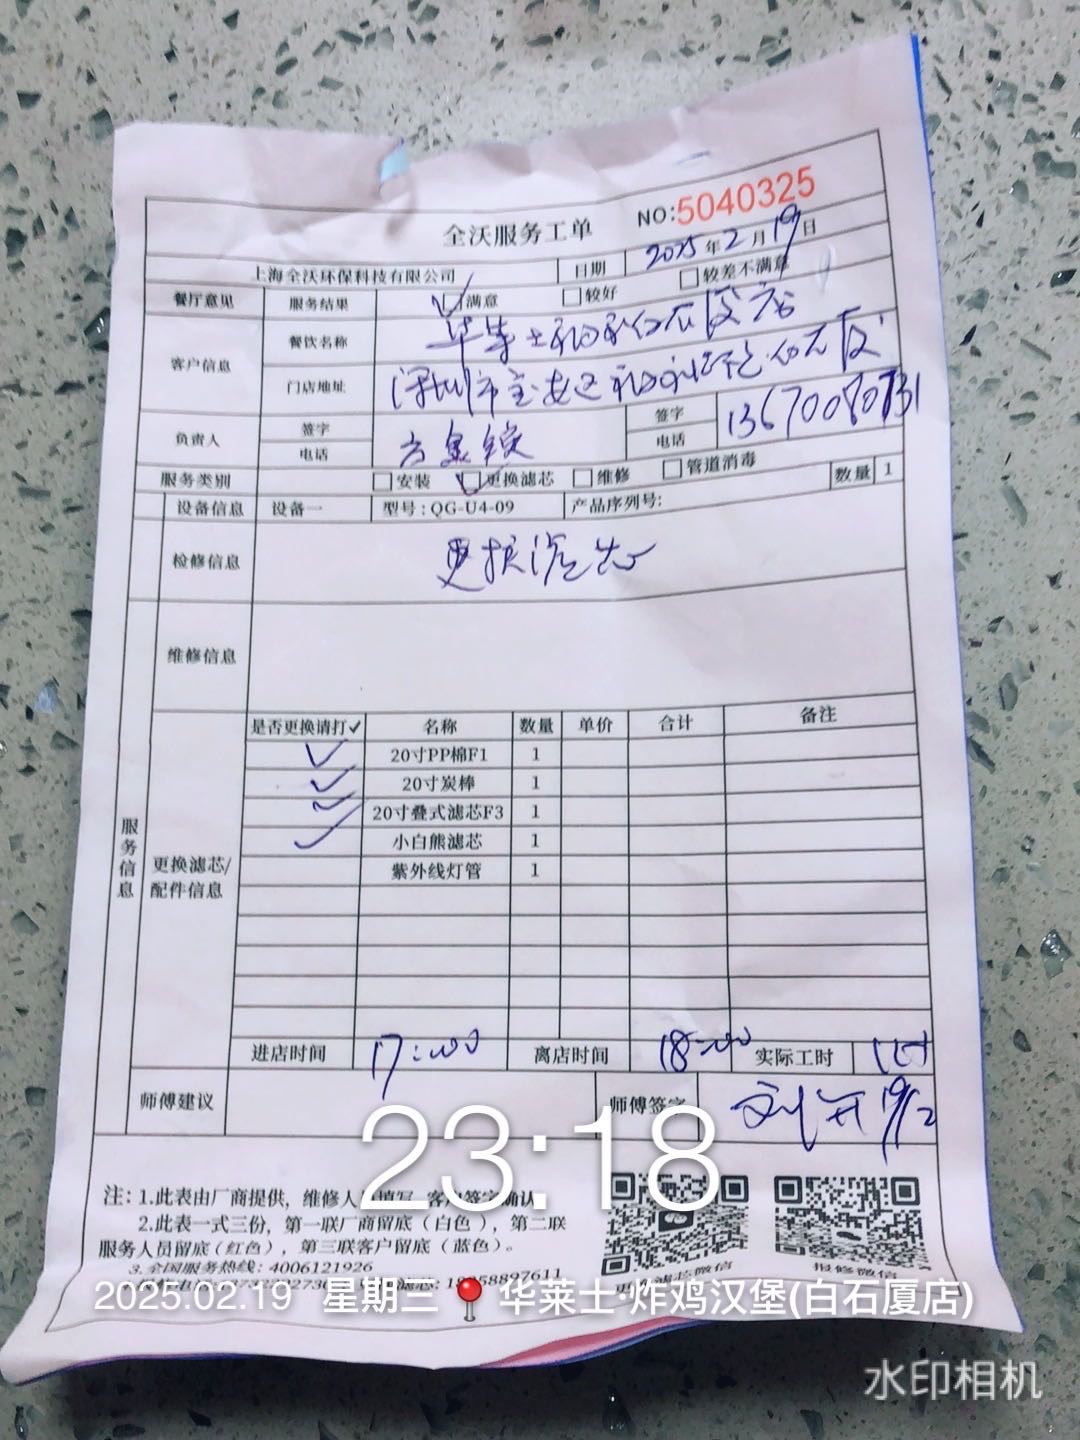 全沃服务工单 NO:5040325
上海全沃环保科技有限公司 日期 2025年2月19日
餐厅意见 服务结果 满意 较好 较差不满意
客户信息 餐饮名称 华莱士福永白石厦店
门店地址 深圳市宝安区福永街道白石厦
负责人 签字 签字
电话 电话 13670080731
服务类别 安装 更换滤芯 维修 管道消毒
设备信息 设备一 型号:QG-U4-09 产品序列号: 数量 1
检修信息 更换滤芯
维修信息
服务信息
更换滤芯/配件信息
是否更换请打✓ 名称 数量 单价 合计 备注
✓ 20寸PP棉F1 1
✓ 20寸炭棒 1
✓ 20寸叠式滤芯F3 1
✓ 小白熊滤芯 1
紫外线灯管 1
进店时间 17:00 离店时间 18:00 实际工时
师傅建议 师傅签字 19/2
23:18
注:1.此表由厂商提供,维修人员填写,客户签字确认
2.此表一式三份,第一联厂商留底(白色),第二联
服务人员留底(红色),第三联客户留底(蓝色)。
3.全国服务热线:4006121926
更换滤芯微信 报修微信
2025.02.19 星期三 华莱士·炸鸡汉堡(白石厦店)
水印相机